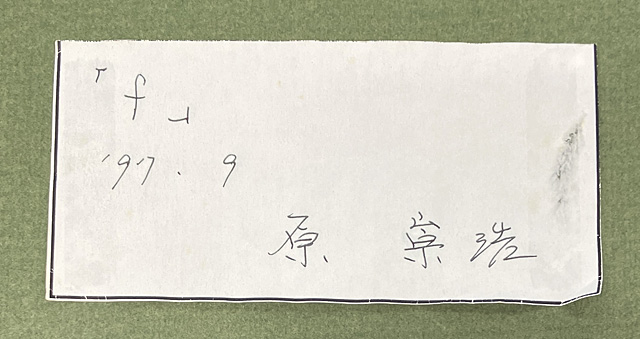 「f」
'97.9
原 崇浩